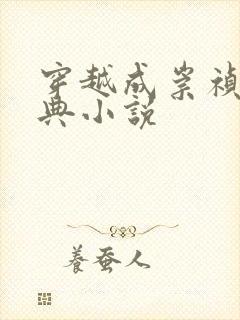 穿越成崇禎
典小説
養蚕人